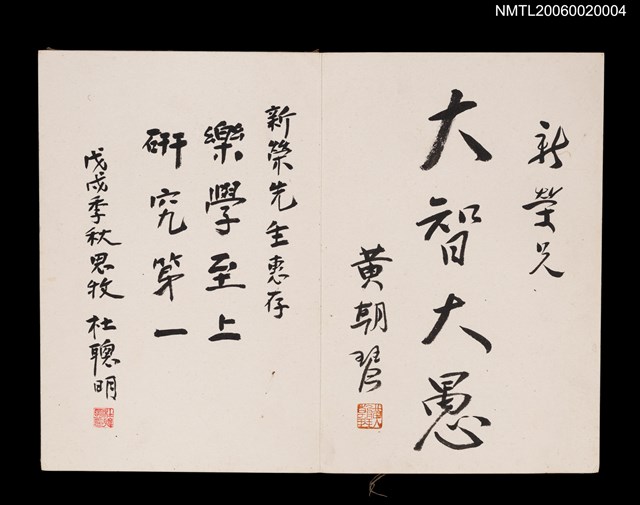 NMTL20060020004
新榮兄
大智大愚
黃朝琴
新榮先生惠存
樂學至上
研究第一
戊戌季秋思牧 杜聰明